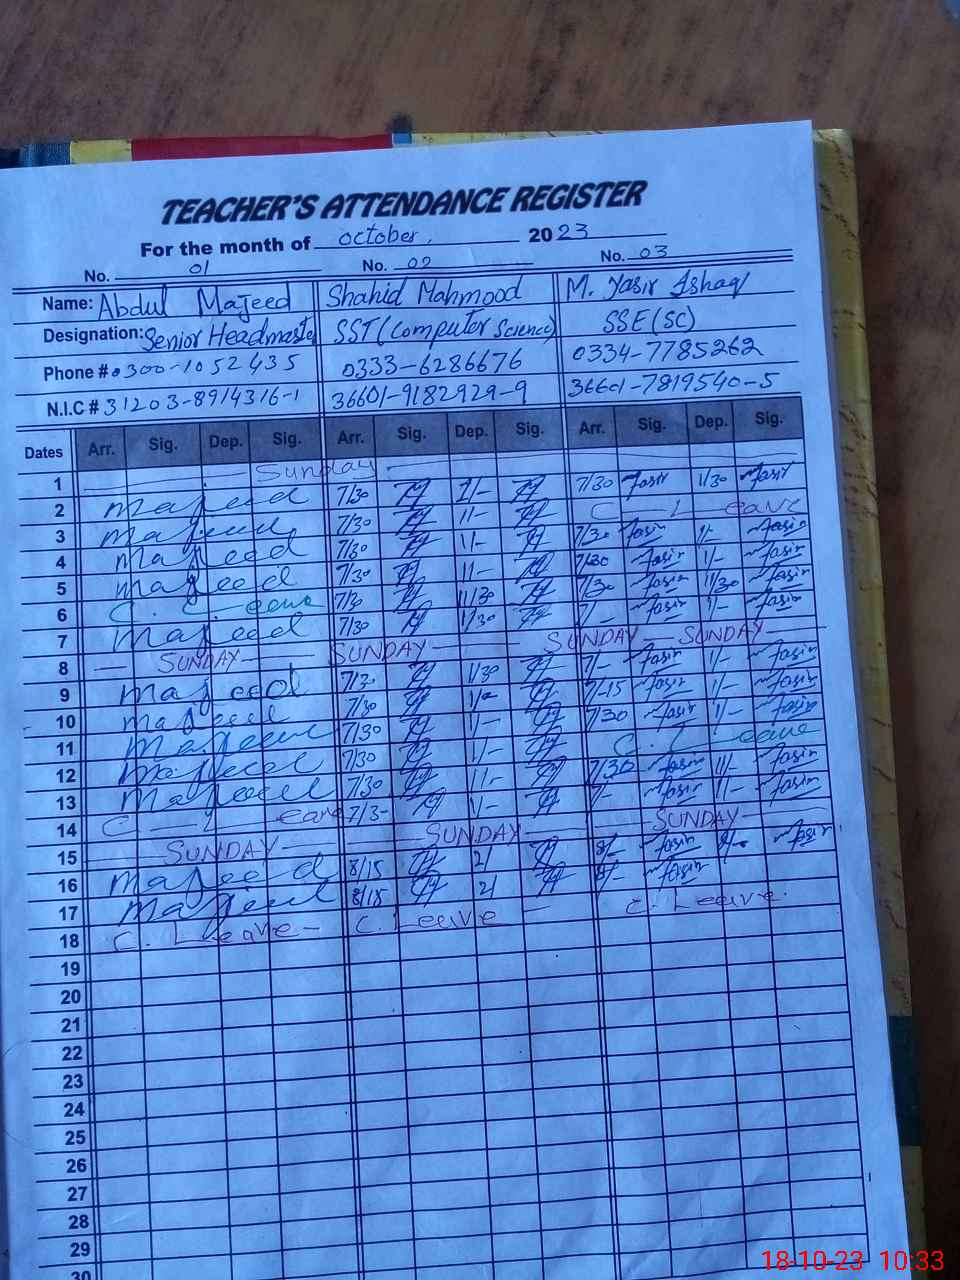 TEACHER'S ATTENDANCE REGISTER
For the month of October, 2023
No. 01 No. 02 No. 03
Name: Abdul Majeed Shahid Mahmood M. Yasir Ishaq
Designation: Senior Headmaster SST (Computer Science) SSE (SC)
Phone # 0300-1052435 0333-6286676 0334-7785262
N.I.C # 31203-8914316-1 36601-9182929-9 36601-7819540-5
Dates Arr. Sig. Dep. Sig. Arr. Sig. Dep. Sig. Arr. Sig. Dep. Sig.
1 Sunday
2 Majeed 7/30 1/- 7/30 Yasir 1/30 Yasir
3 Majeed 7/30 1/- C-L-eave
4 Majeed 7/30 1/- 7/30 Yasir 1/- Yasir
5 Majeed 7/30 1/- 7/30 Yasir 1/- Yasir
6 C. L-eave 7/30 11/30 7/30 Yasir 11/30 Yasir
7 Majeed 7/30 1/30 7/- Yasir 1/- Yasir
8 SUNDAY SUNDAY SUNDAY SUNDAY
9 Majeed 7/30 1/30 7/- Yasir 1/- Yasir
10 Majeed 7/30 7/15 Yasir 1/- Yasir
11 Majeed 7/30 1/- 7/30 Yasir 1/- Yasir
12 Majeed 7/30 1/- C. L-eave
13 Majeed 7/30 11/- 7/30 Yasir 11/- Yasir
14 C-L-eave 7/3- 1/- 7/- Yasir 1/- Yasir
15 SUNDAY SUNDAY SUNDAY
16 Majeed 8/15 2/ 8/- Yasir Yasir
17 Majeed 8/15 2/ 8/- Yasir
18 C. Leave- C. Leave - C. Leave.
19
20
21
22
23
24
25
26
27
28
29
30
18-10-23 10:33